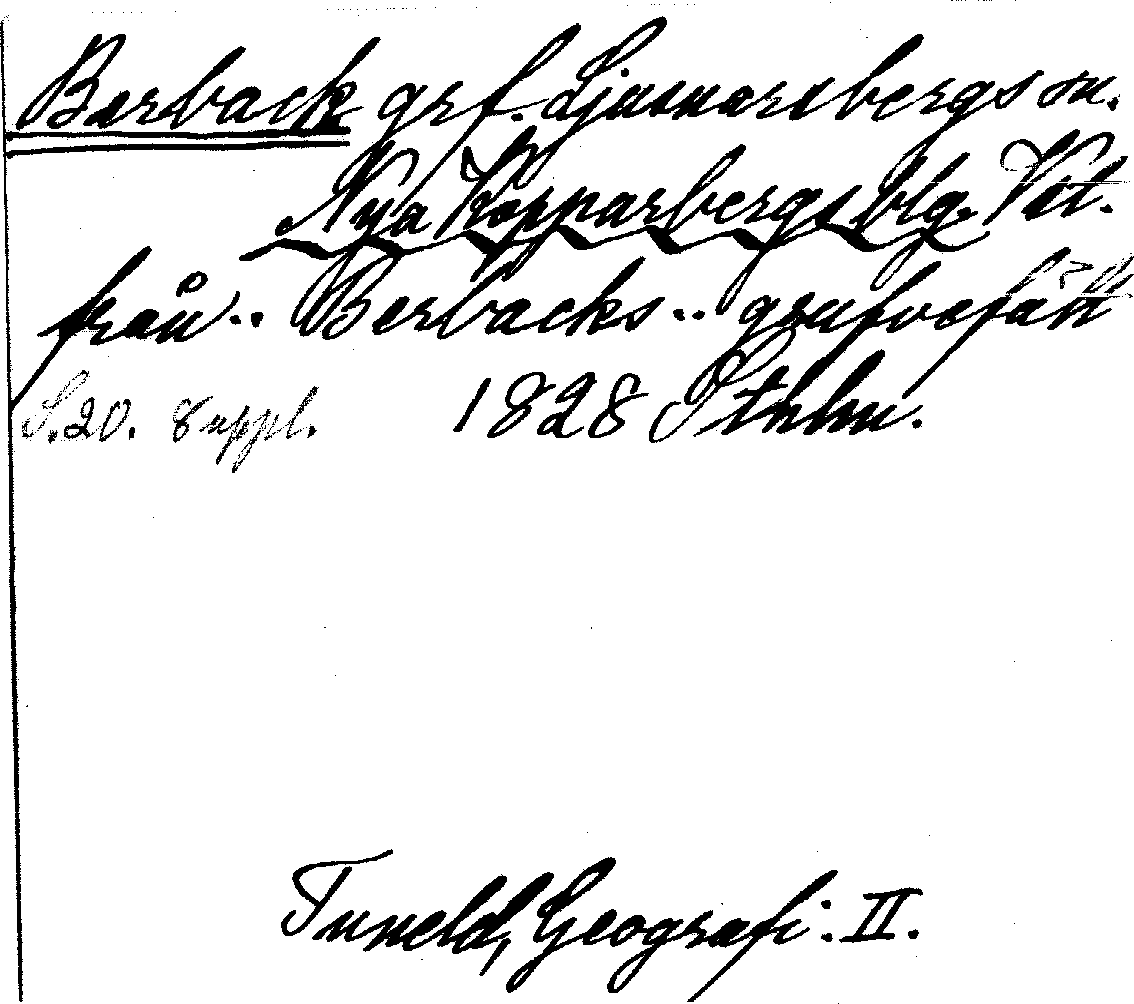 Berback grf. Ljusnarsbergs sn.
Nya Kopparbergs blg. Vstl.
från .. Berbacks .. grufvefält
S. 20. Suppl. 1828 Sthlm.
Tuneld, Geografi. II.